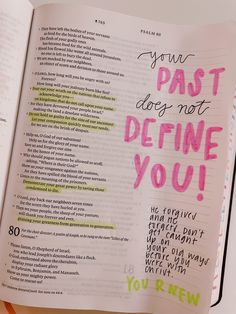 PSALM 80
2 They have left the bodies of your servants
as food for the birds of heaven.
The flesh of your godly ones
has become food for the wild animals.
3 Blood has flowed like water all around Jerusalem;
no one is left to bury the dead.
4 We are mocked by our neighbors,
an object of scorn and derision to those around us.
5 O LORD, how long will you be angry with us?
Forever?
How long will your jealousy burn like fire?
6 Pour out your wrath on the nations that refuse to
acknowledge you—
on kingdoms that do not call upon your name.
7 For they have devoured your people Israel,
making the land a desolate wilderness.
8 Do not hold us guilty for the sins of our ancestors!
Let your compassion quickly meet our needs,
for we are on the brink of despair.
9 Help us, O God of our salvation!
Help us for the glory of your name.
Save us and forgive our sins
for the honor of your name.
10 Why should pagan nations be allowed to scoff,
asking, "Where is their God?"
Show us your vengeance against the nations,
for they have spilled the blood of your servants.
11 Listen to the moaning of the prisoners.
Demonstrate your great power by saving those
condemned to die.
12 O Lord, pay back our neighbors seven times
for the scorn they have hurled at you.
13 Then we your people, the sheep of your pasture,
will thank you forever and ever,
praising your greatness from generation to generation.
80
1 Please listen, O Shepherd of Israel,
you who lead Joseph's descendants like a flock.
O God, enthroned above the cherubim,
display your radiant glory
2 to Ephraim, Benjamin, and Manasseh.
Show us your mighty power.
Come to rescue us!
your
PAST
does not
DEFINE
YOU!
He forgives
and He
forgets don't
get caught
up on your
old ways
before you
were with
Christ.
YOU R NEW